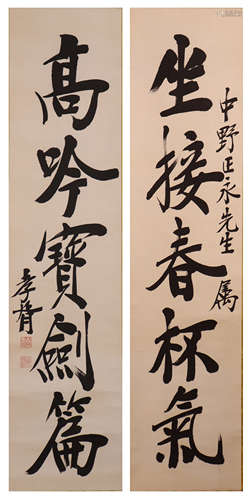 坐接春杯氣
中野正永先生属
高吟寶劍篇
孝胥